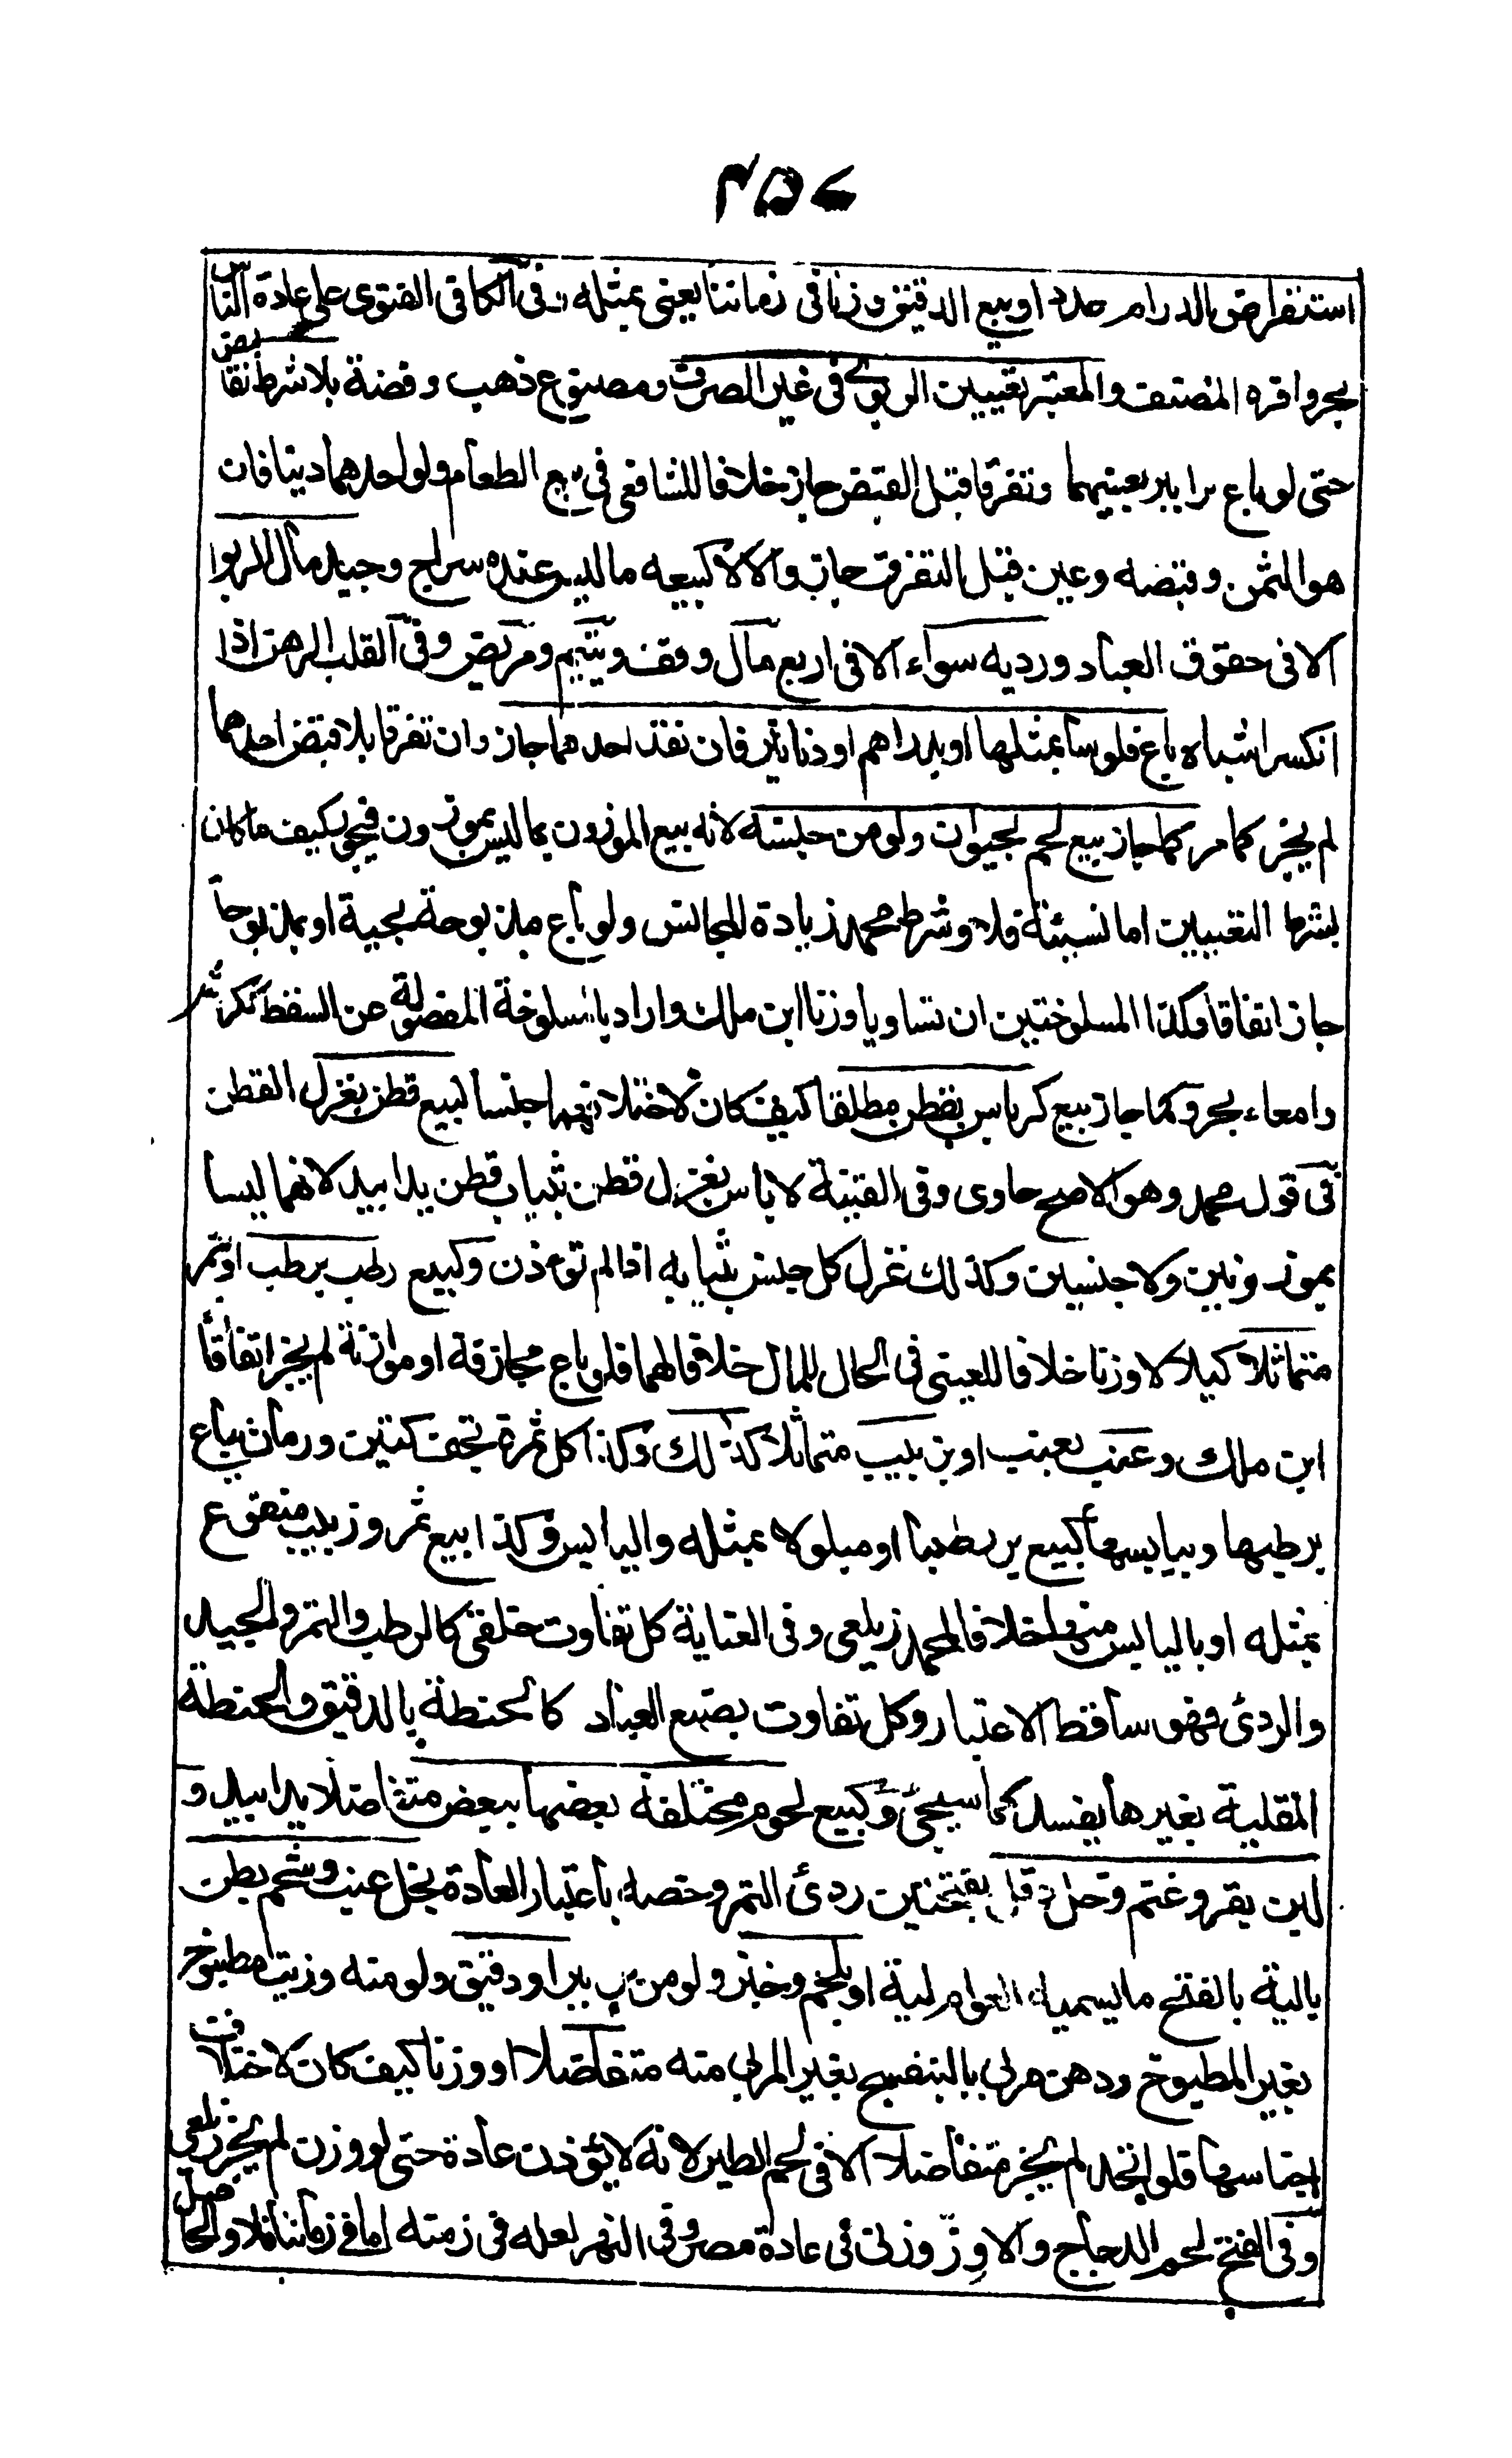 ٣٥٧
استقراض الدراهم عددا وبيع الدقيق وزنا فى زماننا يعنى بمثله وفى الكافى الفتوى على عادة الناس
بحر واقره المصنف والمعتبر تعيين الربوى فى غير الصرف ومصنوع ذهب وفضة بلا شرط تقابض
حتى لو باع برا ببر بعينهما وتفرقا قبل القبض جاز خلافا للشافعى فى بيع الطعام ولو احدهما دينا فان
هو الثمن وقبضه وعين قبل التفرق جاز والا لا كبيعه ما ليس عنده سراج وجيد مال الربوا
الا فى حقوق العباد ورديه سواء الا فى اربع مال وقف ويتيم ومريض وفى القلب الرهن اذا
انكسر اشباه باع فلوسا بمثلها او بدراهم او دنانير فان نقد احدهما جاز وان تفرقا بلا قبض احدهما
لم يجز كما مر كما جاز بيع لحم بحيوان ولو من جنسه لانه بيع الموزون بما ليس بموزون فيجوز كيف ما كان
بشرط التعيين اما نسيئة فلا وشرط محمد زيادة المجانس ولو باع مذبوحة بحية او بمذبوحة
جاز اتفاقا وكذا المسلوختين ان تساويا وزنا ابن ملك واراد بالمسلوخة المفصولة عن السقط ككرش
وامعاء بحر وكما جاز بيع كرباس بقطن مطلقا كيف كان لاختلافهما جنسا كبيع قطن بغزل القطن
فى قول محمد وهو الاصح حاوى وفى القنية لا باس بغزل قطن بثياب قطن يدا بيد لانهما ليسا
بموزونين ولا جنسين وكذلك غزل كل جنس بثيابه اذا لم توزن وكبيع رطب برطب او تمر
متماثلا كيلا لا وزنا خلافا للعينى فى الحال لا المال خلافا لهما فلو باع مجازفة او موازنة لم يجز اتفاقا
ابن ملك وعنب بعنب او بزبيب متماثلا كذلك وكذا كل ثمرة تجف كتين ورمان يباع
برطبها وبيابسها كبيع بر رطبا او مبلولا بمثله وباليابس وكذا بيع تمر وزبيب منقوع
بمثله او باليابس منهما خلافا لمحمد زيلعى وفى العناية كل تفاوت خلقى كالرطب والتمر والجيد
والردئ فهو ساقط الاعتبار وكل تفاوت بصنع العباد كالحنطة بالدقيق والحنطة
المقلية بغيرها يفسد كما سيجئ وكبيع لحوم مختلفة بعضها ببعض متفاضلا يدا بيد و
لبن بقر وغنم وخل دقل بفتحتين ردئ التمر وخصه باعتبار العادة بخل عنب وشحم بطن
بالية بالفتح ما يسميه العوام لية او بلحم وخبز ولو من بر ببر او دقيق ولو منه وزيت مطبوخ
بغير المطبوخ ودهن مربى بالبنفسج بغير المربى منه متفاضلا او وزنا كيف كان لاختلاف
اجناسها فلو اتحد لم يجز متفاضلا الا فى لحم الطير لانه لا يوزن عادة حتى لو وزن لم يجز زيلعى
وفى الفتح لحم الدجاج والاوز وزنى فى عادة مصر وفى النهر لعله فى زمنه اما فى زماننا فلا والحاصل